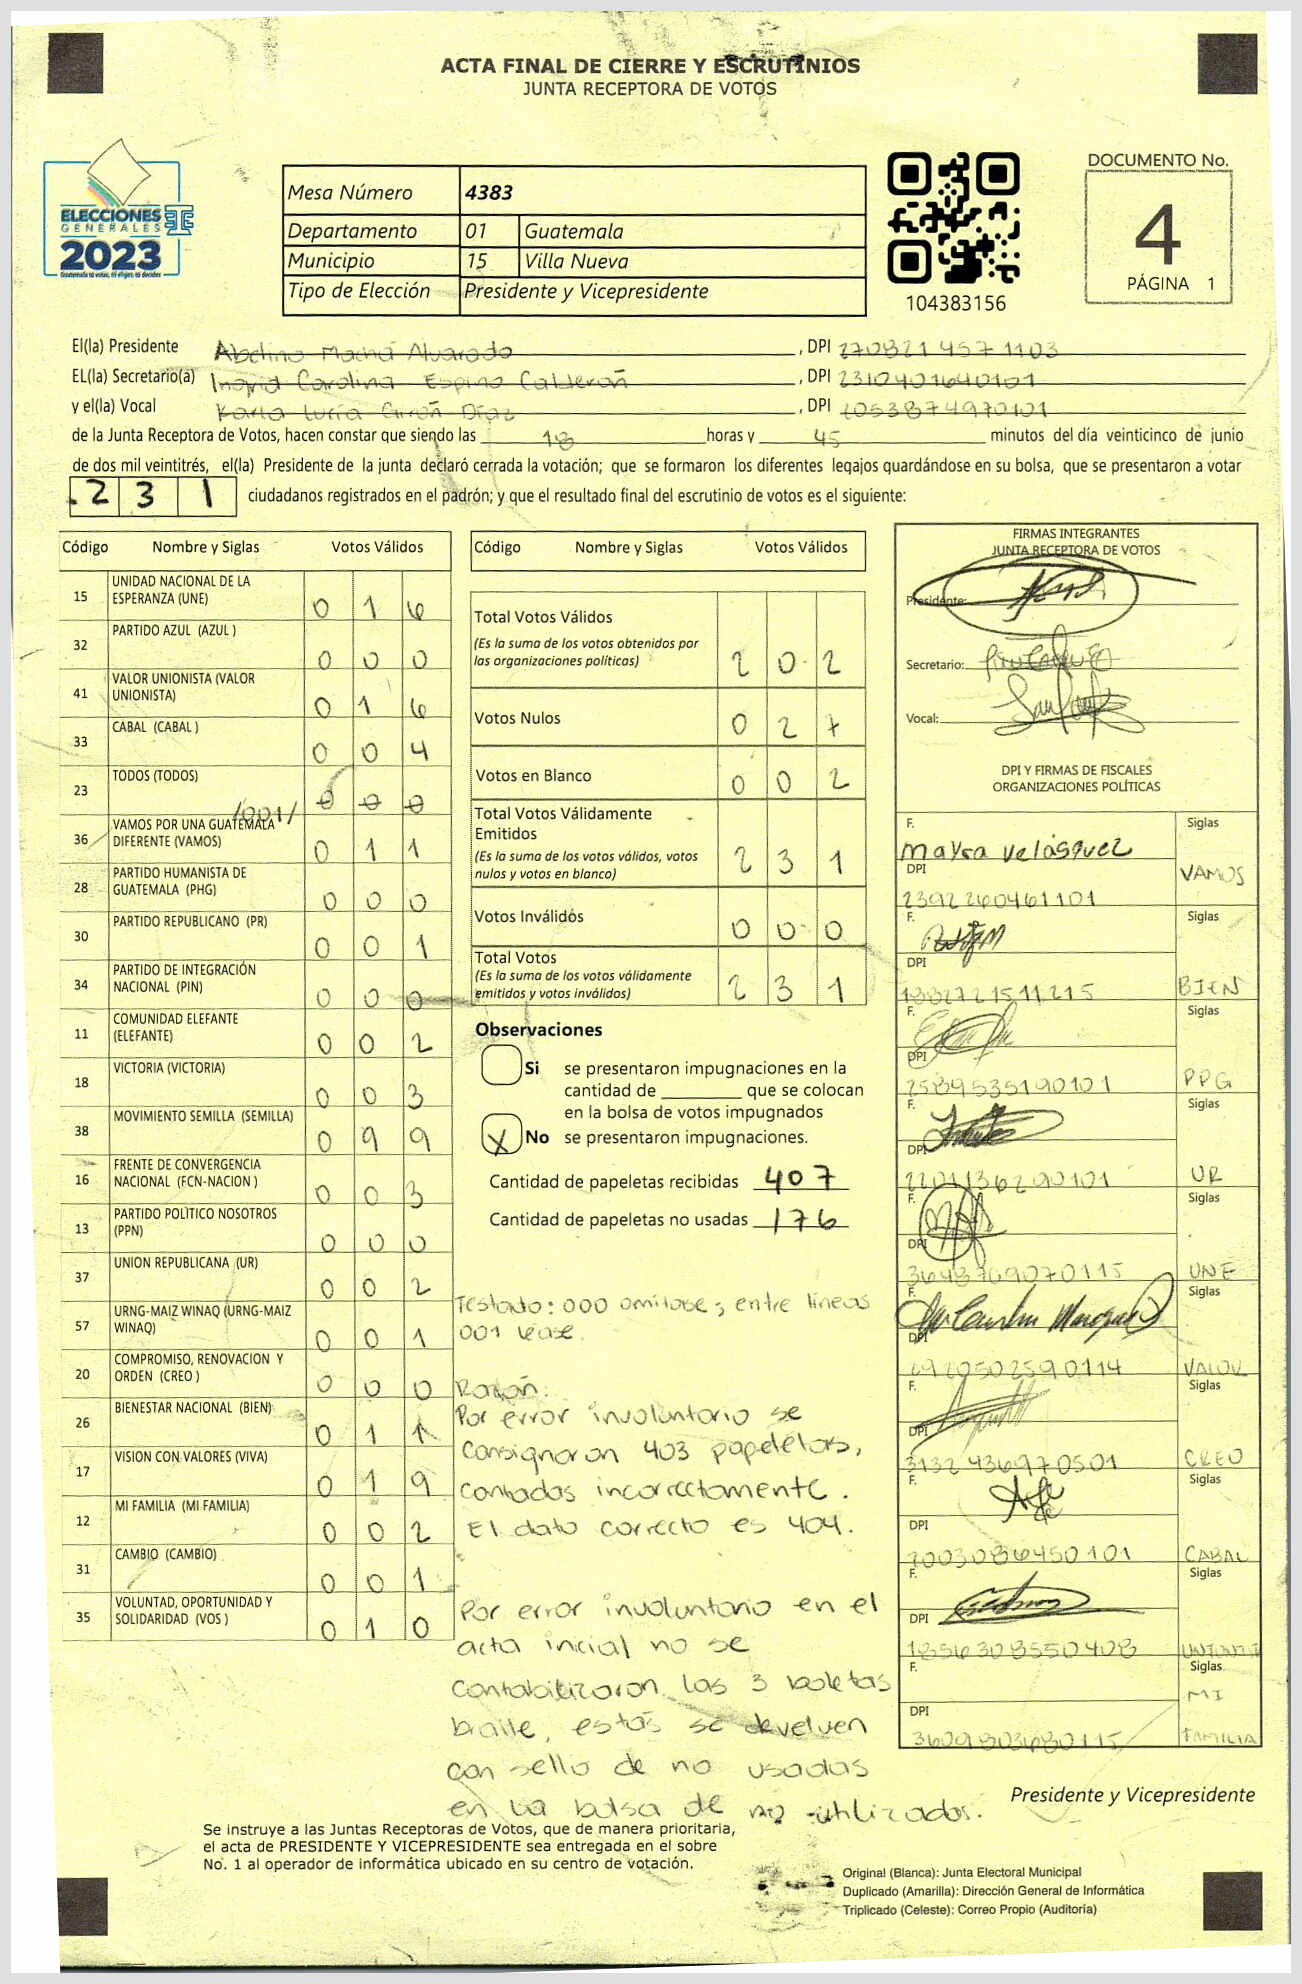 ACTA FINAL DE CIERRE Y ESCRUTINIOS
JUNTA RECEPTORA DE VOTOS
ELECCIONES
GENERALES
2023
Mesa Número 4383
Departamento 01 Guatemala
Municipio 15 Villa Nueva
Tipo de Elección Presidente y Vicepresidente
104383156
DOCUMENTO No.
4
PÁGINA 1
El(la) Presidente Abelino Machá Alvarado , DPI 270821 457 1103
EL(la) Secretario(a) Ingrid Carolina Espino Calderón , DPI 2310401640101
y el(la) Vocal Karla Lucía Girón Díaz , DPI 2053874970101
de la Junta Receptora de Votos, hacen constar que siendo las 18 horas y 45 minutos del día veinticinco de junio
de dos mil veintitrés, el(la) Presidente de la junta declaró cerrada la votación; que se formaron los diferentes legajos guardándose en su bolsa, que se presentaron a votar
231 ciudadanos registrados en el padrón; y que el resultado final del escrutinio de votos es el siguiente:
Código Nombre y Siglas Votos Válidos
15 UNIDAD NACIONAL DE LA
ESPERANZA (UNE) 0 1 6
32 PARTIDO AZUL (AZUL ) 0 0 0
41 VALOR UNIONISTA (VALOR
UNIONISTA) 0 1 6
33 CABAL (CABAL ) 0 0 4
23 TODOS (TODOS) /001/ 0 0 0
36 VAMOS POR UNA GUATEMALA
DIFERENTE (VAMOS) 0 1 1
28 PARTIDO HUMANISTA DE
GUATEMALA (PHG) 0 0 0
30 PARTIDO REPUBLICANO (PR) 0 0 1
34 PARTIDO DE INTEGRACIÓN
NACIONAL (PIN) 0 0 0
11 COMUNIDAD ELEFANTE
(ELEFANTE) 0 0 2
18 VICTORIA (VICTORIA) 0 0 3
38 MOVIMIENTO SEMILLA (SEMILLA) 0 9 9
16 FRENTE DE CONVERGENCIA
NACIONAL (FCN-NACION ) 0 0 3
13 PARTIDO POLÍTICO NOSOTROS
(PPN) 0 0 0
37 UNION REPUBLICANA (UR) 0 0 2
57 URNG-MAIZ WINAQ (URNG-MAIZ
WINAQ) 0 0 1
20 COMPROMISO, RENOVACION Y
ORDEN (CREO ) 0 0 0
26 BIENESTAR NACIONAL (BIEN) 0 1 1
17 VISION CON VALORES (VIVA) 0 1 9
12 MI FAMILIA (MI FAMILIA) 0 0 2
31 CAMBIO (CAMBIO) 0 0 1
35 VOLUNTAD, OPORTUNIDAD Y
SOLIDARIDAD (VOS ) 0 1 0
Código Nombre y Siglas Votos Válidos
Total Votos Válidos
(Es la suma de los votos obtenidos por
las organizaciones políticas) 2 0 2
Votos Nulos 0 2 7
Votos en Blanco 0 0 2
Total Votos Válidamente
Emitidos
(Es la suma de los votos válidos, votos
nulos y votos en blanco) 2 3 1
Votos Inválidos 0 0 0
Total Votos
(Es la suma de los votos válidamente
emitidos y votos inválidos) 2 3 1
Observaciones
Si se presentaron impugnaciones en la
cantidad de ________ que se colocan
en la bolsa de votos impugnados
X No se presentaron impugnaciones.
Cantidad de papeletas recibidas 407
Cantidad de papeletas no usadas 176
Testado: 000 omitase; entre líneas
001 lease.
Razón:
Por error involuntario se
consignaron 403 papeletas,
contadas incorrectamente.
El dato correcto es 404.
Por error involuntario en el
acta inicial no se
contabilizaron las 3 boletas
braille, estas se devuelven
con sello de no usadas
en la bolsa de no utilizados.
FIRMAS INTEGRANTES
JUNTA RECEPTORA DE VOTOS
Presidente:
Secretario:
Vocal:
DPI Y FIRMAS DE FISCALES
ORGANIZACIONES POLÍTICAS
F. Siglas
Mayra Velásquez
DPI VAMOS
2392260461101
F. Siglas
DPI
1882721511215 BIEN
F. Siglas
DPI
2589535190101 PPG
F. Siglas
DPI
2201136290101 UR
F. Siglas
DPI
3648769070115 UNE
F. Siglas
DPI
VALOR
F. Siglas
DPI
3132436970501 CREO
F. Siglas
DPI
2003086450101 CABAL
F. Siglas
DPI
1856308550408
F. Siglas
MI
DPI
3609803680115 FAMILIA
Presidente y Vicepresidente
Se instruye a las Juntas Receptoras de Votos, que de manera prioritaria,
el acta de PRESIDENTE Y VICEPRESIDENTE sea entregada en el sobre
No. 1 al operador de informática ubicado en su centro de votación.
Original (Blanca): Junta Electoral Municipal
Duplicado (Amarilla): Dirección General de Informática
Triplicado (Celeste): Correo Propio (Auditoría)